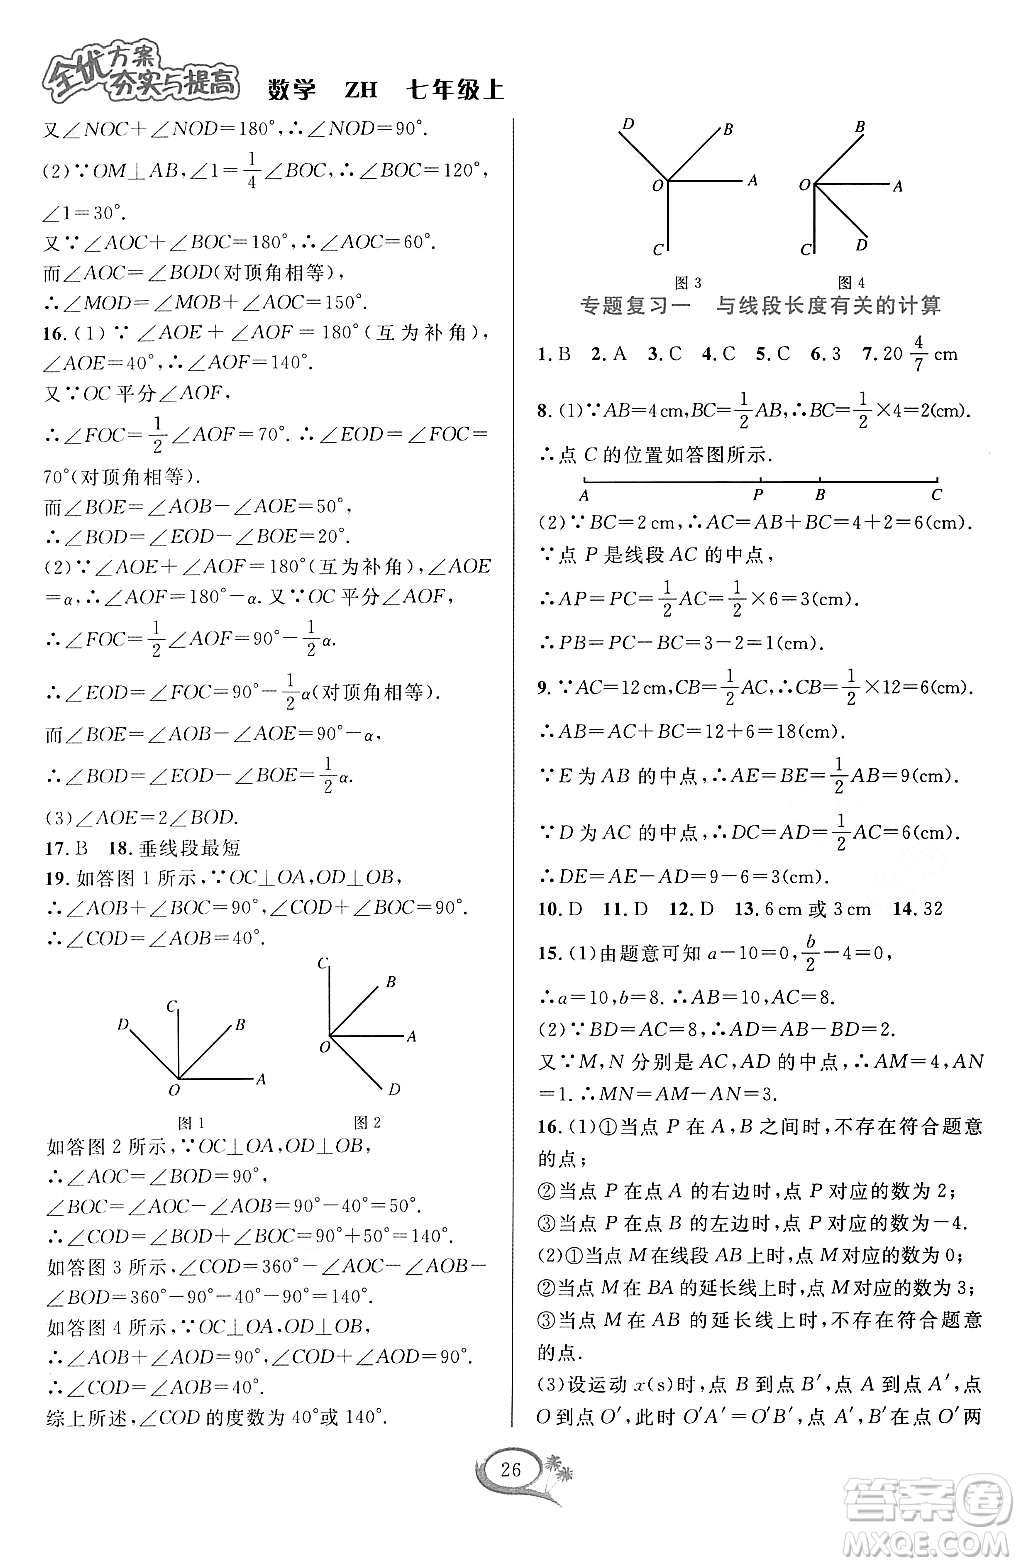 全优方案
夯实与提高
数学 ZH 七年级上
又∠NOC+∠NOD=180°,∴∠NOD=90°.
(2)∵OM⊥AB,∠1=1/4∠BOC,∴∠BOC=120°,
∠1=30°.
又∵∠AOC+∠BOC=180°,∴∠AOC=60°.
而∠AOC=∠BOD(对顶角相等),
∴∠MOD=∠MOB+∠AOC=150°.
16.(1)∵∠AOE+∠AOF=180°(互为补角),
∠AOE=40°,∴∠AOF=140°.
又∵OC平分∠AOF,
∴∠FOC=1/2∠AOF=70°.∴∠EOD=∠FOC=
70°(对顶角相等).
而∠BOE=∠AOB-∠AOE=50°,
∴∠BOD=∠EOD-∠BOE=20°.
(2)∵∠AOE+∠AOF=180°(互为补角),∠AOE
=α,∴∠AOF=180°-α.又∵OC平分∠AOF,
∴∠FOC=1/2∠AOF=90°-1/2α.
∴∠EOD=∠FOC=90°-1/2α(对顶角相等).
而∠BOE=∠AOB-∠AOE=90°-α,
∴∠BOD=∠EOD-∠BOE=1/2α.
(3)∠AOE=2∠BOD.
17.B 18.垂线段最短
19.如答图1所示,∵OC⊥OA,OD⊥OB,
∴∠AOB+∠BOC=90°,∠COD+∠BOC=90°,
∴∠COD=∠AOB=40°.
D C B O A
图1
C B A O D
图2
如答图2所示,∵OC⊥OA,OD⊥OB,
∴∠AOC=∠BOD=90°,
∠BOC=∠AOC-∠AOB=90°-40°=50°.
∴∠COD=∠BOD+∠BOC=90°+50°=140°.
如答图3所示,∠COD=360°-∠AOC-∠AOB-
∠BOD=360°-90°-40°-90°=140°.
如答图4所示,∵OC⊥OA,OD⊥OB,
∴∠AOB+∠AOD=90°,∠COD+∠AOD=90°,
∴∠COD=∠AOB=40°.
综上所述,∠COD的度数为40°或140°.
D B O A C
图3
B O A C D
图4
专题复习一 与线段长度有关的计算
1.B 2.A 3.C 4.C 5.C 6.3 7.20 4/7 cm
8.(1)∵AB=4cm,BC=1/2AB,∴BC=1/2×4=2(cm).
∴点C的位置如答图所示.
A P B C
(2)∵BC=2cm,∴AC=AB+BC=4+2=6(cm).
∵点P是线段AC的中点,
∴AP=PC=1/2AC=1/2×6=3(cm).
∴PB=PC-BC=3-2=1(cm).
9.∵AC=12cm,CB=1/2AC,∴CB=1/2×12=6(cm).
∴AB=AC+BC=12+6=18(cm).
∵E为AB的中点,∴AE=BE=1/2AB=9(cm).
∵D为AC的中点,∴DC=AD=1/2AC=6(cm).
∴DE=AE-AD=9-6=3(cm).
10.D 11.D 12.D 13.6cm或3cm 14.32
15.(1)由题意可知a-10=0,b/2-4=0,
∴a=10,b=8.∴AB=10,AC=8.
(2)∵BD=AC=8,∴AD=AB-BD=2.
又∵M,N分别是AC,AD的中点,∴AM=4,AN
=1.∴MN=AM-AN=3.
16.(1)①当点P在A,B之间时,不存在符合题意
的点;
②当点P在点A的右边时,点P对应的数为2;
③当点P在点B的左边时,点P对应的数为-4.
(2)①当点M在线段AB上时,点M对应的数为0;
②当点M在BA的延长线上时,点M对应的数为3;
③当点M在AB的延长线上时,不存在符合题意
的点.
(3)设运动x(s)时,点B到点B′,点A到点A′,点
O到点O′,此时O′A′=O′B′,点A′,B′在点O′两
26
答案圈
MXQE.COM